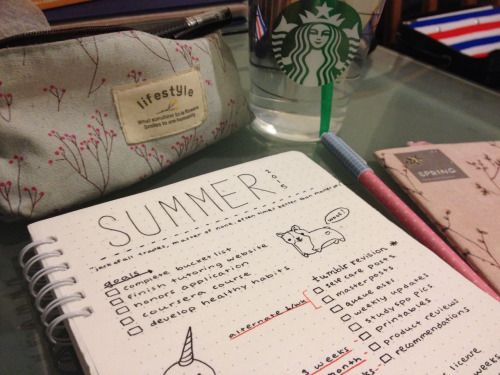 lifestyle
What sunshine is to flowers
smiles to are humanity
SPRING
SUMMER
2015
"jack of all trades, master of none, often times better than master of
woof!
goals
complete bucket list
finish tutoring website
honors application
coursera course
develop healthy habits
tumblr revision *
self care posts
masterposts
queue asks
weekly updates
studyspo pics
printables
product reviews
recommendations
alternate b/wk
weeks
month
license